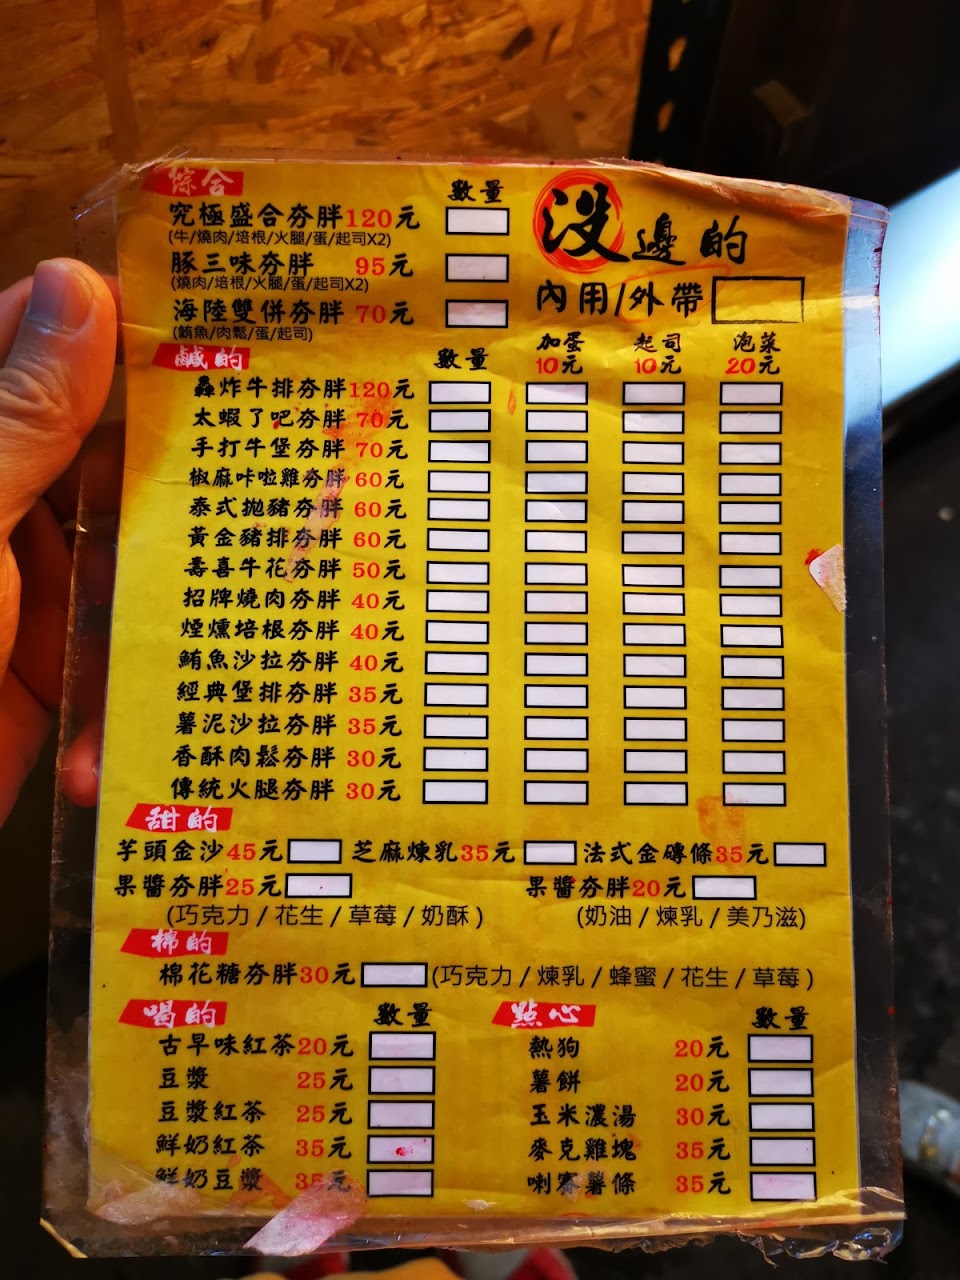 綜合 數量
究極盛合夯胖120元
(牛/燒肉/培根/火腿/蛋/起司X2)
豚三味夯胖 95元
(燒肉/培根/火腿/蛋/起司X2)
海陸雙併夯胖 70元
(鮪魚/肉鬆/蛋/起司)
沒邊的
內用/外帶
鹹的 數量 加蛋10元 起司10元 泡菜20元
轟炸牛排夯胖120元
太蝦了吧夯胖 70元
手打牛堡夯胖 70元
椒麻咔啦雞夯胖 60元
泰式拋豬夯胖 60元
黃金豬排夯胖 60元
壽喜牛花夯胖 50元
招牌燒肉夯胖 40元
煙燻培根夯胖 40元
鮪魚沙拉夯胖 40元
經典堡排夯胖 35元
薯泥沙拉夯胖 35元
香酥肉鬆夯胖 30元
傳統火腿夯胖 30元
甜的
芋頭金沙45元 芝麻煉乳35元 法式金磚條35元
果醬夯胖25元 果醬夯胖20元
(巧克力/花生/草莓/奶酥) (奶油/煉乳/美乃滋)
棉的
棉花糖夯胖30元 (巧克力/煉乳/蜂蜜/花生/草莓)
喝的 數量
古早味紅茶20元
豆漿 25元
豆漿紅茶 25元
鮮奶紅茶 35元
鮮奶豆漿 35元
點心 數量
熱狗 20元
薯餅 20元
玉米濃湯 30元
麥克雞塊 35元
喇賽薯條 35元